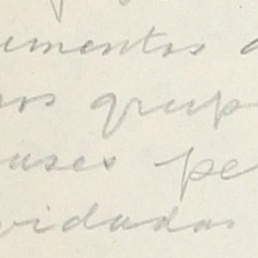 umentos
os grup
uses pe
vidadas